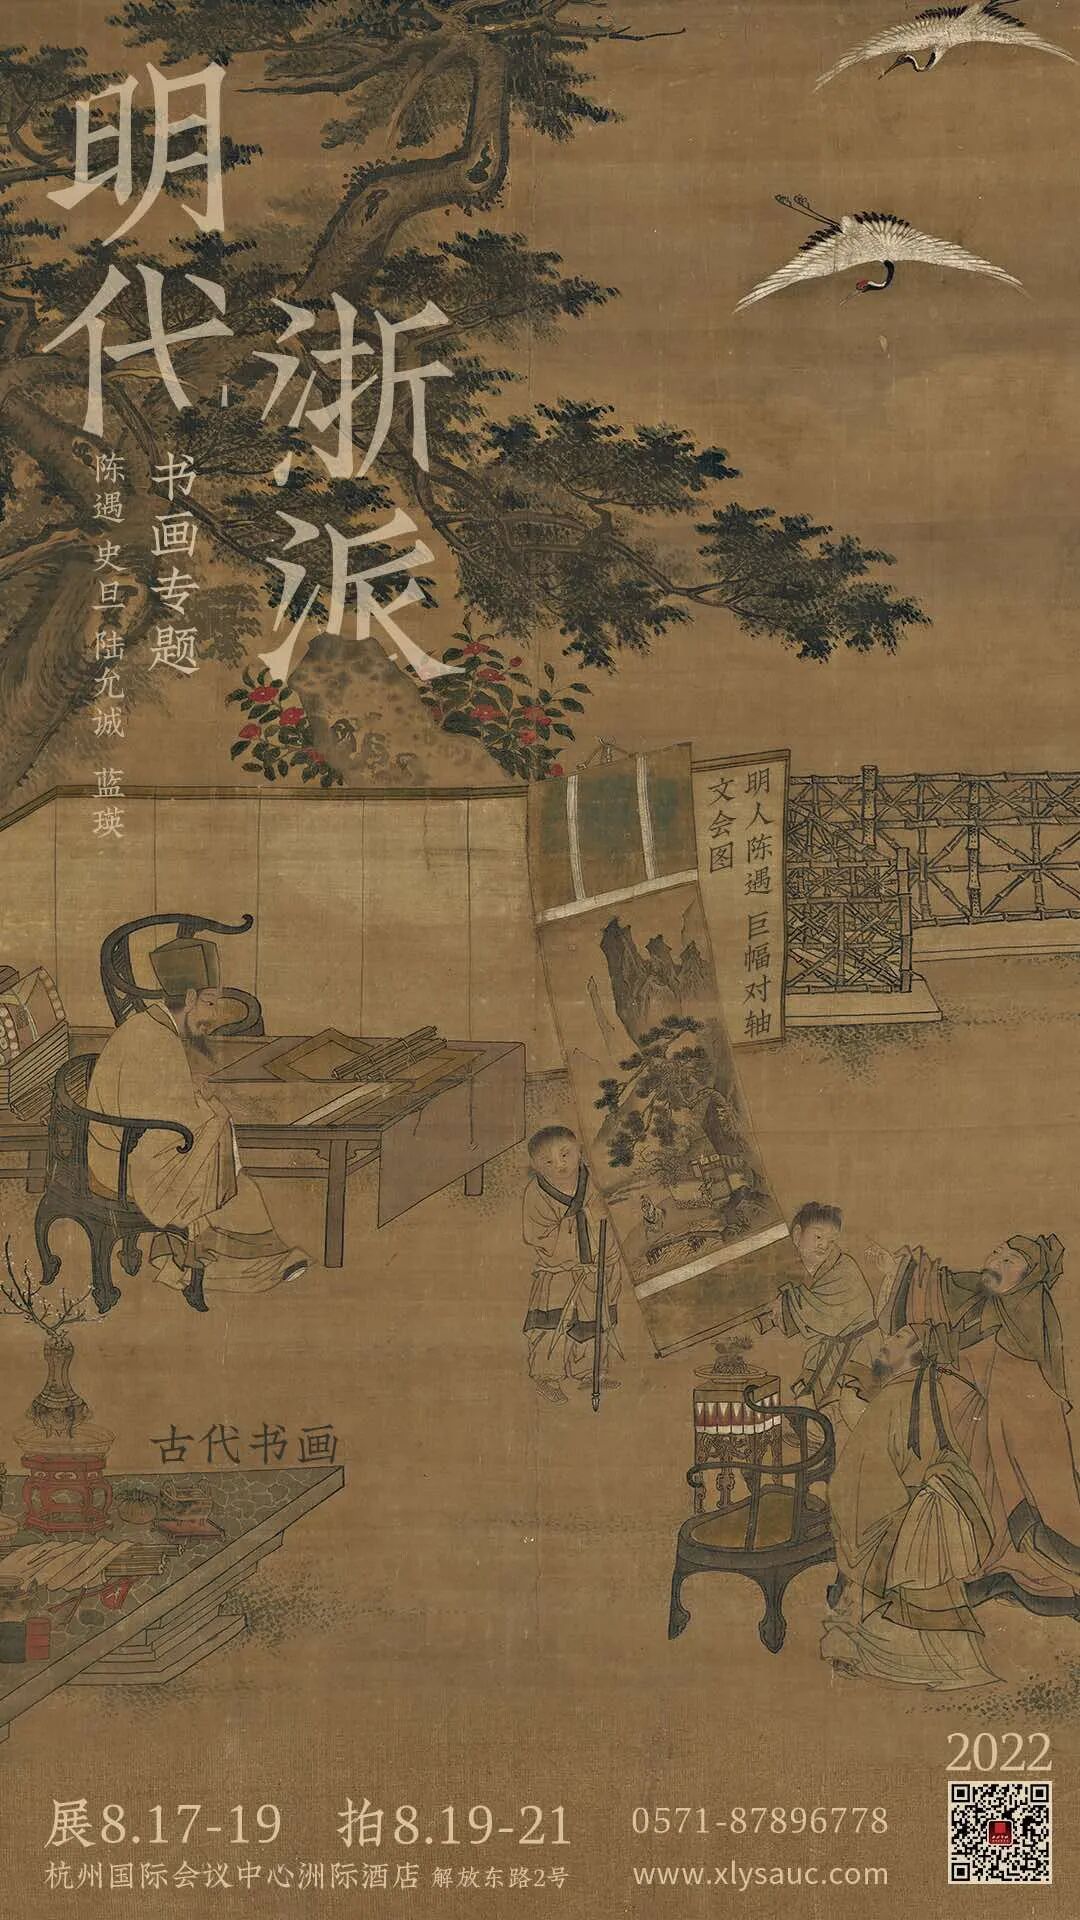 明代
浙派
书画专题
陈遇 史旦 陆允诚 蓝瑛
明人陈遇 巨幅对轴
文会图
古代书画
2022
展8.17-19 拍8.19-21
0571-87896778
杭州国际会议中心洲际酒店 解放东路2号
www.xlysauc.com